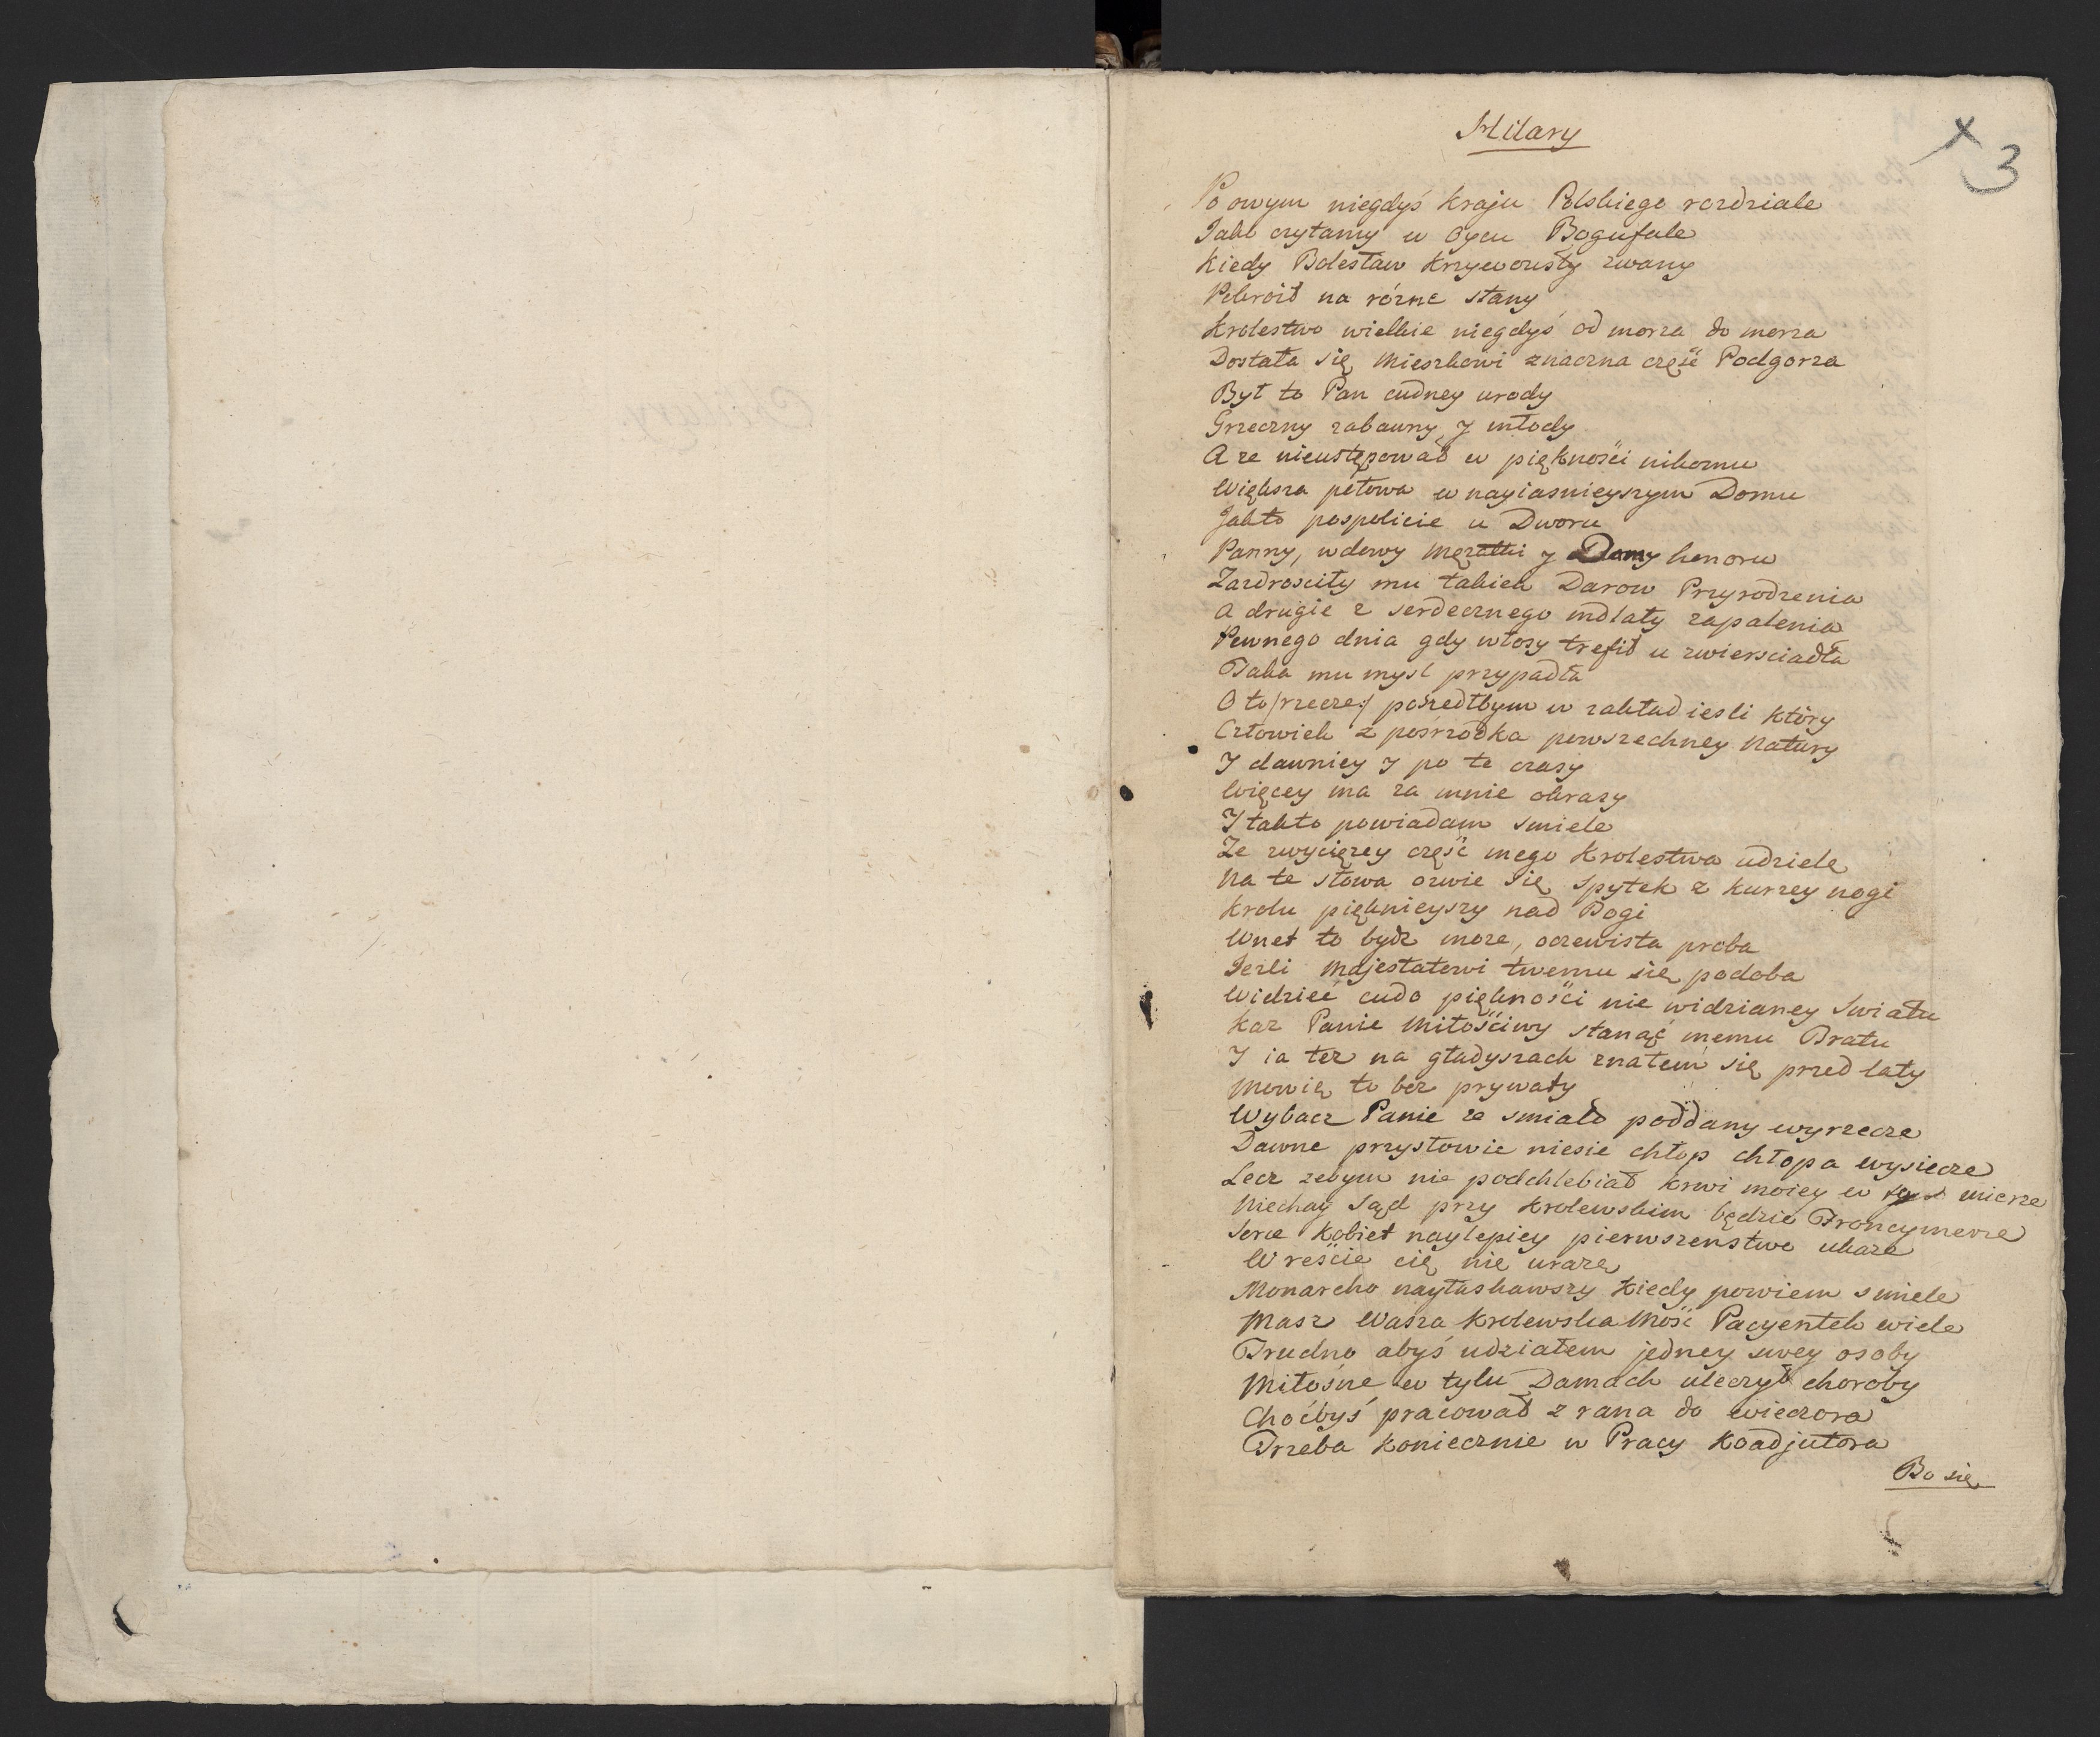 Hilary
3
Po owym niegdyś kraju Polskiego rozdziale
Jak czytamy w Oycu Bogufale
kiedy Bolesław krzywousty zwany
Pokroił na rózne stany
krolestwo wielkie niegdyś od morza do morza
Dostała się Mieszkowi znaczna część Podgorza
Był to Pan cudney urody
Grzeczny zabawny y młody
A ze nieustępował w piękności nikomu
Większa połowa w nayiasnieyszym Domu
Jakto pospolicie u Dworu
Panny, wdowy Mężatki y Damy honoru
Zazdrosciły mu takich Darow Przyrodzenia
A drugie z serdecznego mdlały zapalenia
Pewnego dnia gdy włosy trefił u zwierściadła
Taka mu mysl przypadła
O to /rzecze/ poszedłbym w zakład iesli który
Człowiek z pośrzodka powszechney Natury
Y dawniey y po te czasy
Więcey ma za mnie okrasy
Y takto powiadam smiele
Ze zwyciężcy część mego krolestwa udziele
Na te słowa ozwie się Spytek z kurzey nogi
krolu pięknieyszy nad Bogi
Wnet to bydz moze, oczewista proba
Jezli Majestatowi twemu się podoba
Widzieć cudo piękności nie widzianey swiatu
kaz Panie Miłościwy stanąć memu Bratu
Y ia tez na gładyszach znałem się przed laty
Mowię to bez prywaty
Wybacz Panie ze smiało poddany wyrzecze
Dawne przysłowie niesie chłop chłopa wysiecze
Lecz zebym nie podchlebiał krwi moiey w mierze
Niechay Sąd przy krolewskim będzie Froncymerze
Serce kobiet naylepiey pierwszenstwo ukaze
Wreście cię nie urazę
Monarcho nayłaskawszy kiedy powiem smiele
Masz Wasza krolewska Mość Pacyentek wiele
Trudno abyś udziałem jedney swey osoby
Miłośne w tylu Damach uleczył choroby
Choćbyś pracował z rana do wieczora
Trzeba koniecznie w Pracy Koadjutora
Bo się